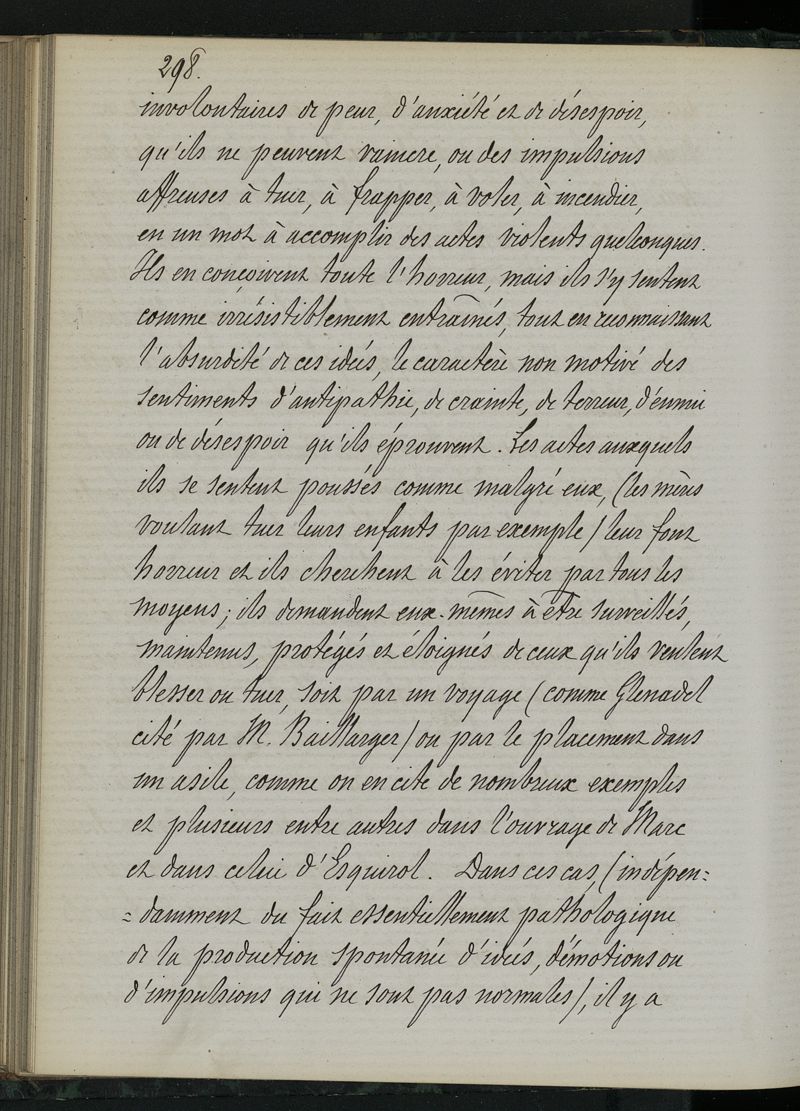 298.
involontaires de peur, d'anxiété et de désespoir,
qu'ils ne peuvent vaincre, ou des impulsions
affreuses à tuer, à frapper, à voler, à incendier,
en un mot à accomplir des actes violents quelconques.
Ils en conçoivent toute l'horreur, mais ils s'y sentent
comme irrésistiblement entraînés, tout en reconnaissant
l'absurdité de ces idées, le caractère non motivé des
sentiments d'antipathie, de crainte, de terreur, d'ennui
ou de désespoir qu'ils éprouvent. Les actes auxquels
ils se sentent poussés comme malgré eux, (les mères
voulant tuer leurs enfants par exemple) leur font
horreur et ils cherchent à les éviter par tous les
moyens; ils demandent eux-mêmes à être surveillés,
maintenus, protégés et éloignés de ceux qu'ils veulent
blesser ou tuer, soit par un voyage (comme Glenadel
cité par M. Baillarger) ou par le placement dans
un asile, comme on en cite de nombreux exemples
et plusieurs entre autres dans l'ouvrage de Marc
et dans celui d'Esquirol. Dans ces cas, (indépen=
=damment du fait essentiellement pathologique
de la production spontanée d'idées, d'émotions ou
d'impulsions qui ne sont pas normales), il y a